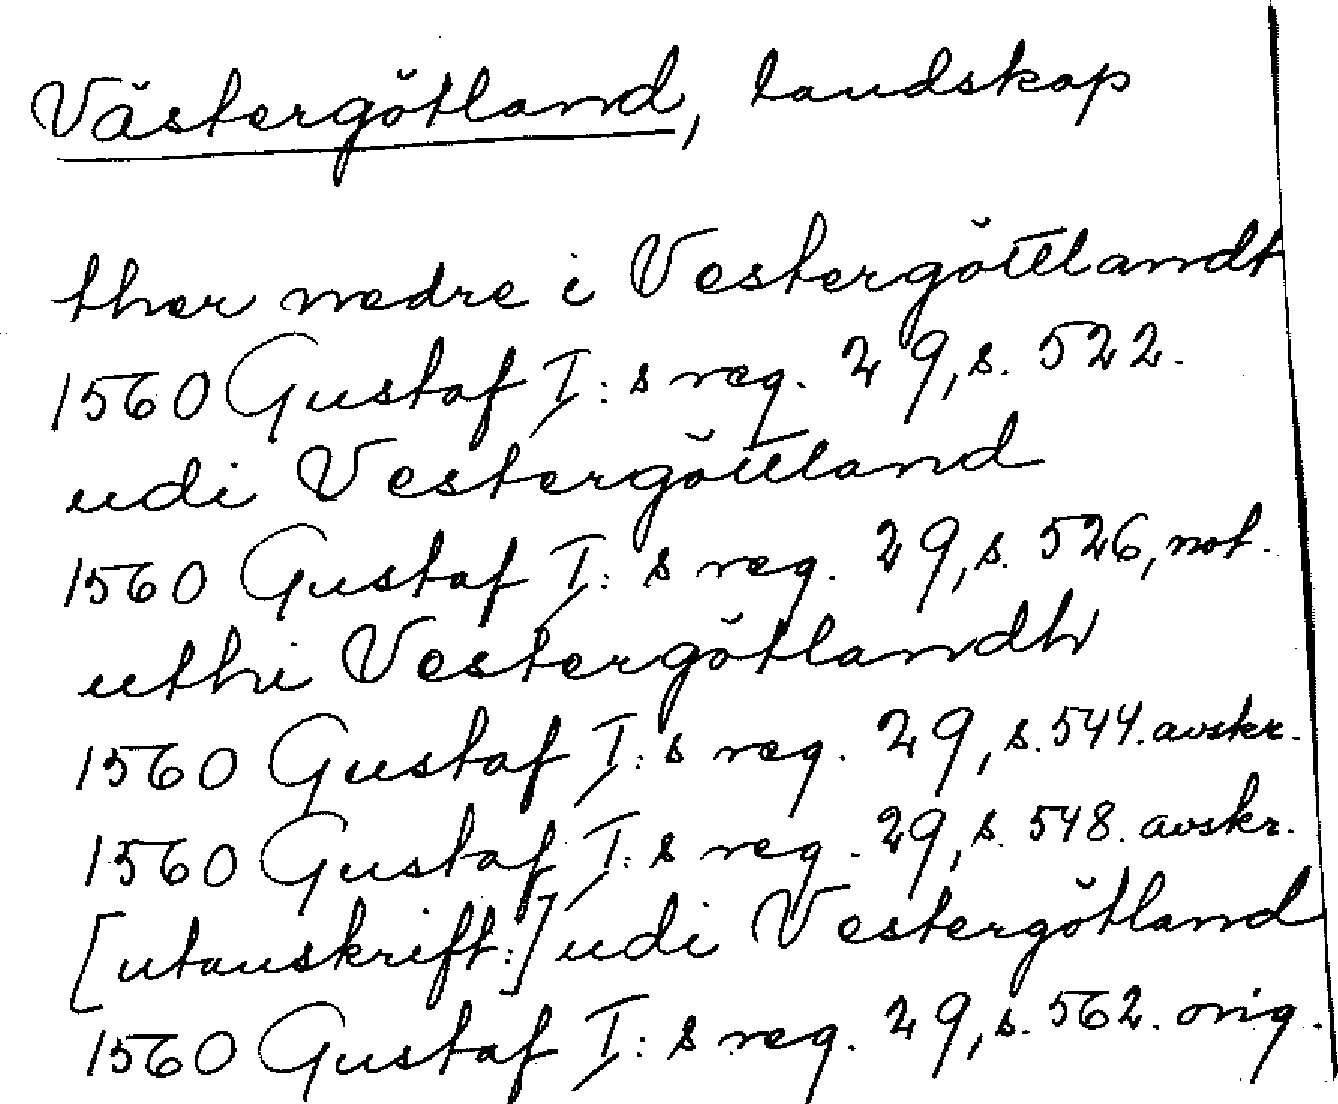 Västergötland, landskap
ther nedre i Vestergöttlandt
1560 Gustaf I:s reg. 29, s. 522.
udi Vestergöttland
1560 Gustaf I:s reg. 29, s. 526, not.
uthi Vestergötlandh
1560 Gustaf I:s reg. 29, s. 544. avskr.
1560 Gustaf I:s reg. 29, s. 548. avskr.
[utanskrift:] udi Vestergötland
1560 Gustaf I:s reg. 29, s. 562. orig.